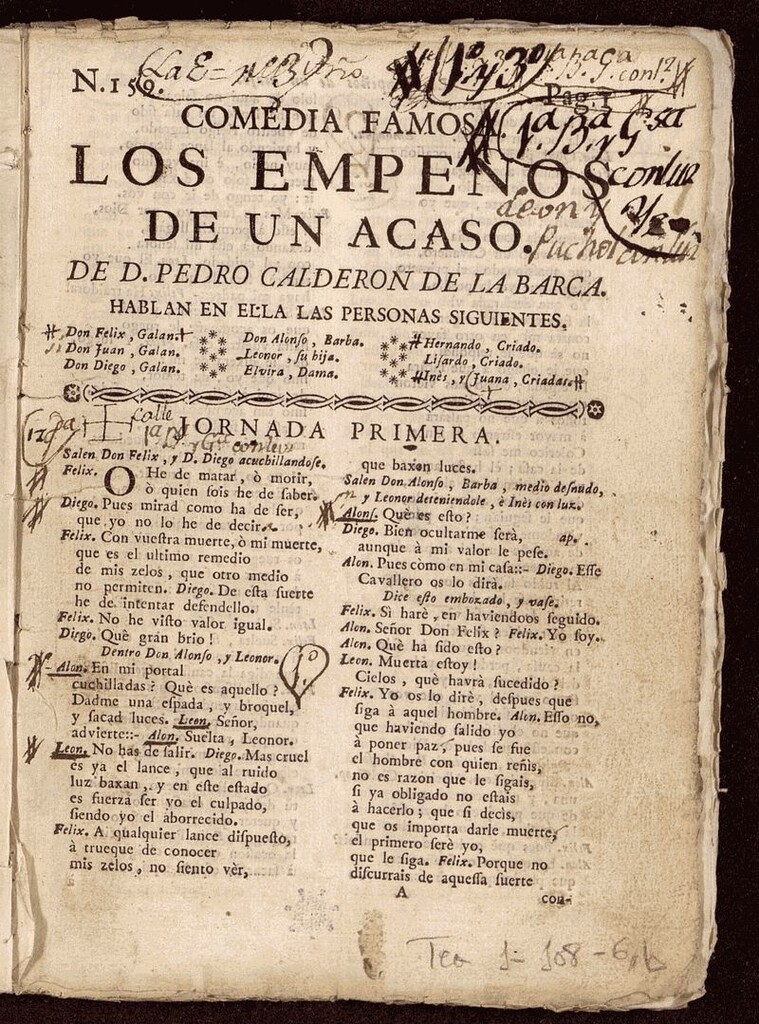 N.159.
Pag.1
COMEDIA FAMOSA.
LOS EMPEÑOS
DE UN ACASO.
DE D. PEDRO CALDERON DE LA BARCA.
HABLAN EN ELLA LAS PERSONAS SIGUIENTES.
Don Felix, Galan. Don Alonso, Barba. Hernando, Criado.
Don Juan, Galan. Leonor, su hija. Lisardo, Criado.
Don Diego, Galan. Elvira, Dama. Inès, y Juana, Criadas.
calle
JORNADA PRIMERA.
Salen Don Felix, y D. Diego acuchillandose.
Felix. O He de matar, ò morir,
ò quien sois he de saber.
Diego. Pues mirad como ha de ser,
que yo no lo he de decir.
Felix. Con vuestra muerte, ò mi muerte,
que es el ultimo remedio
de mis zelos, que otro medio
no permiten. Diego. De esta suerte
he de intentar defendello.
Felix. No he visto valor igual.
Diego. Què gran brio!
Dentro Don Alonso, y Leonor.
Alon. En mi portal
cuchilladas? Què es aquello?
Dadme una espada, y broquel,
y sacad luces. Leon. Señor,
advierte::- Alon. Suelta, Leonor.
Leon. No has de salir. Diego. Mas cruel
es ya el lance, que al ruido
luz baxan, y en este estado
es fuerza ser yo el culpado,
siendo yo el aborrecido.
Felix. A qualquier lance dispuesto,
à trueque de conocer
mis zelos, no siento vèr,
que baxen luces.
Salen Don Alonso, Barba, medio desnudo,
y Leonor deteniendole, è Inès con luz.
Alons. Què es esto?
Diego. Bien ocultarme serà, ap.
aunque à mi valor le pese.
Alon. Pues còmo en mi casa::- Diego. Esse
Cavallero os lo dirà.
Dice esto embozado, y vase.
Felix. Sì harè, en haviendoos seguido.
Alon. Señor Don Felix? Felix. Yo soy.
Alon. Què ha sido esto?
Leon. Muerta estoy!
Cielos, què havrà sucedido?
Felix. Yo os lo dirè, despues que
siga à aquel hombre. Alon. Esso no,
que haviendo salido yo
à poner paz, pues se fue
el hombre con quien reñis,
no es razon que le sigais,
si ya obligado no estais
à hacerlo; que si decìs,
que os importa darle muerte,
el primero serè yo,
que le siga. Felix. Porque no
discurrais de aquessa suerte
A
con-
Tea 1-108-6, b